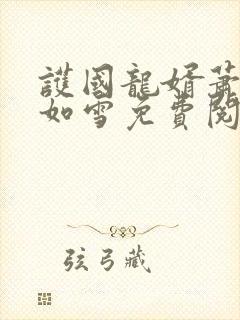 護國龍婿蕭
如雪免費閱
弦弓藏